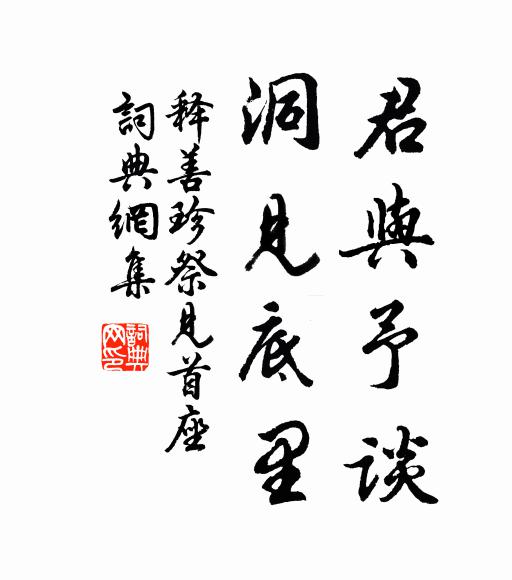 君與予談
洞見底里
释善珍祭见首座
詞典網集
詞典網印